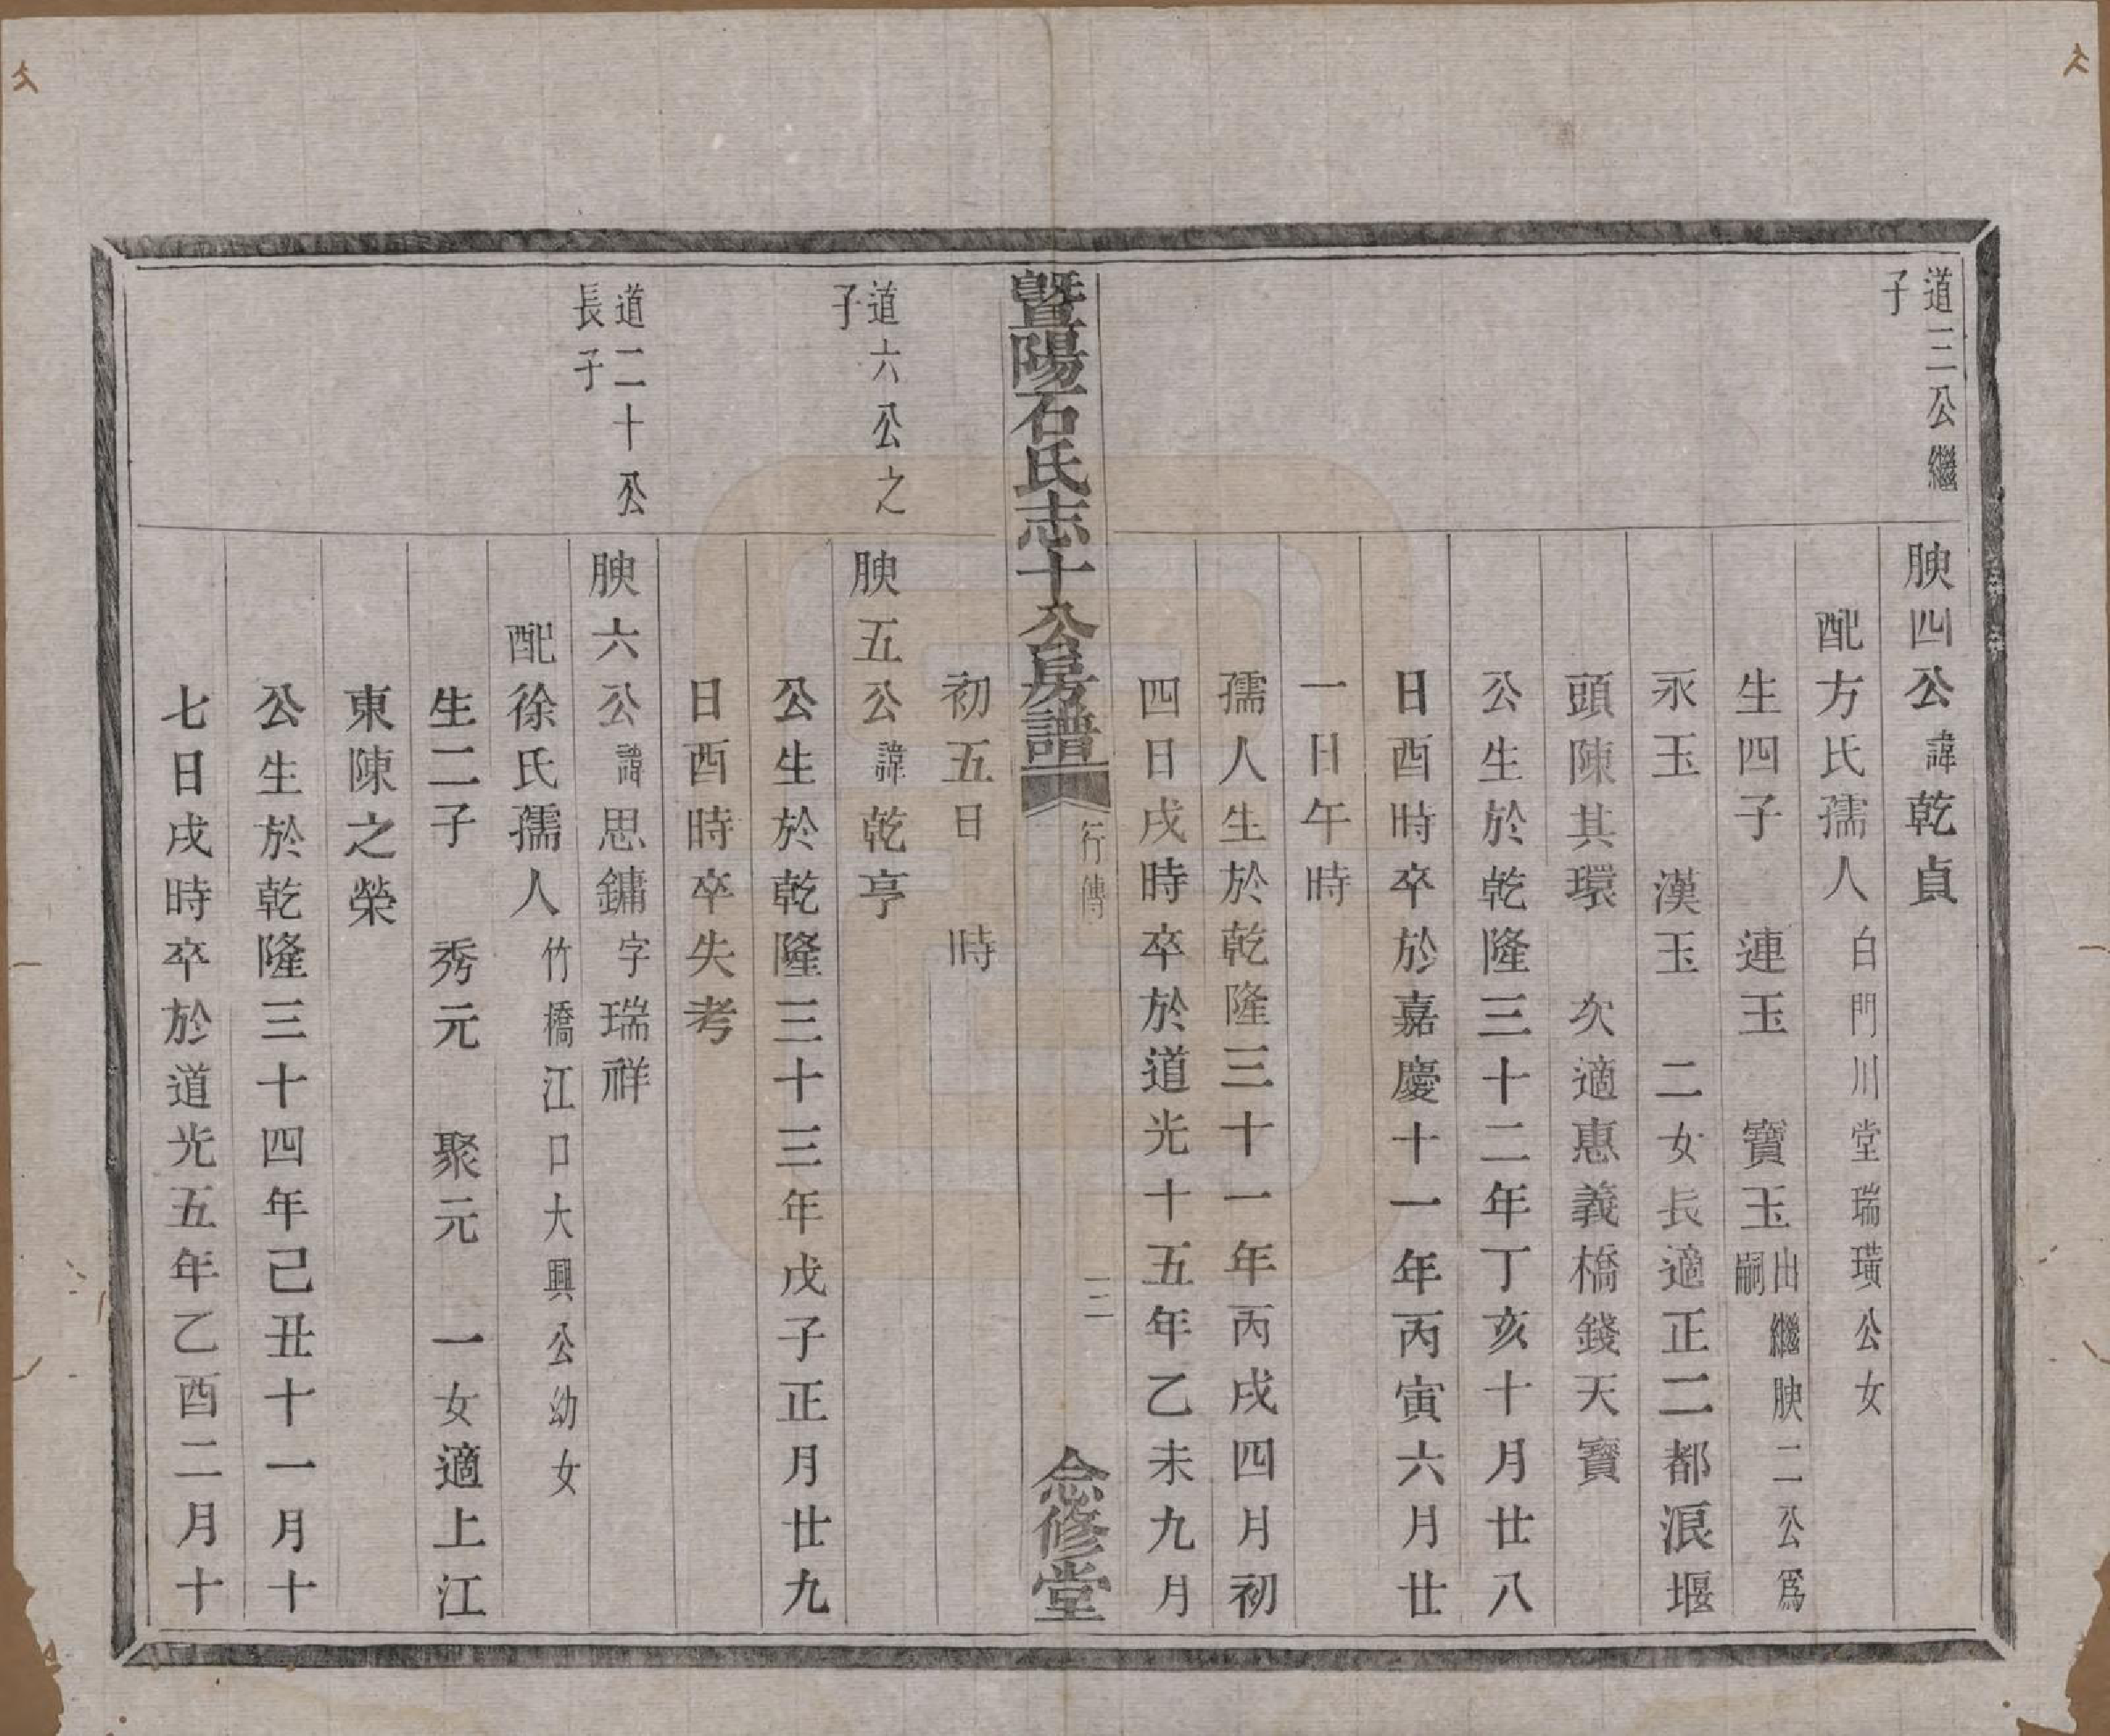 道三公繼
子
腴四公諱乾貞
配方氏孺人白門川堂瑞璜公女
生四子　連玉　寶玉出繼腴二公爲嗣
永玉　漢玉　二女長適正二都浪堰
頭陳其環　次適惠義橋錢天寶
公生於乾隆三十二年丁亥十月廿八
日酉時卒於嘉慶十一年丙寅六月廿
一日午時
孺人生於乾隆三十一年丙戌四月初
四日戌時卒於道光十五年乙未九月
暨陽石氏志十公房譜
行傳
三
念修堂
初五日　時
道六公之
子
腴五公諱乾亨
公生於乾隆三十三年戊子正月廿九
日酉時卒失考
道二十公
長子
腴六公諱思鏞字瑞祥
配徐氏孺人竹橋江口大興公幼女
生二子　秀元　聚元　一女適上江
東陳之榮
公生於乾隆三十四年己丑十一月十
七日戌時卒於道光五年乙酉二月十